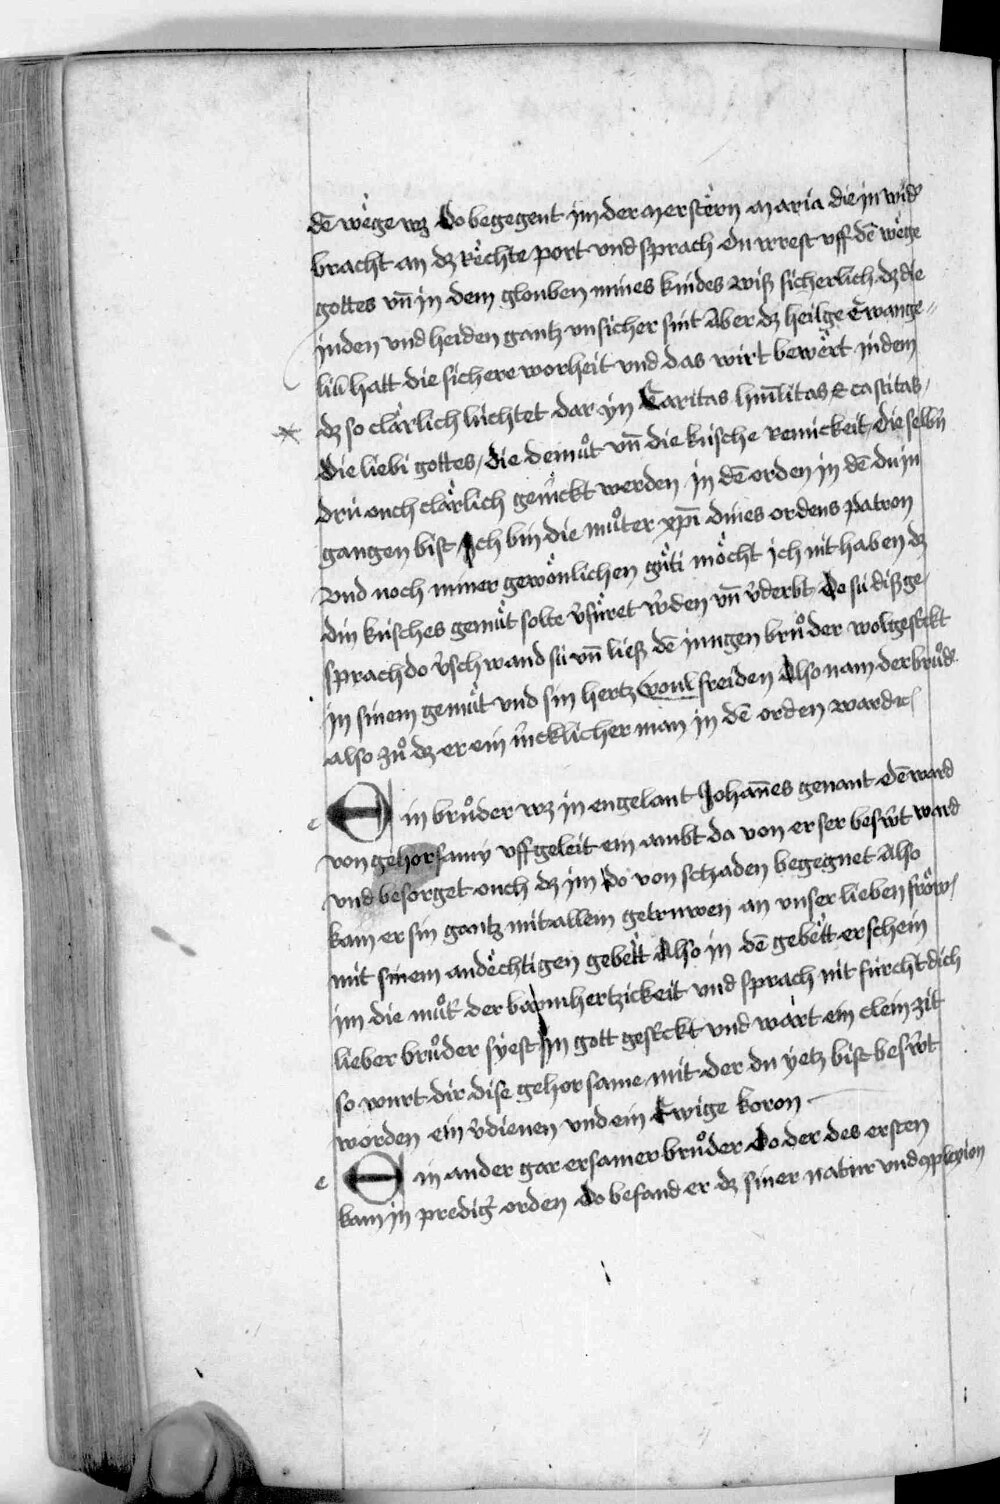 dē wege wz Do begegent jm der merstern maria die in wid̛
bracht an dz Rechte port vnd sprach du irrest vff dē wege
gottes vn̄ in dem glouben mines kindes wiß sicherlich dz die
juden vnd heiden gantz vnsicher sint Aber dz heilge Ewange„
liū hatt die sichere worheit vnd das wirt bewert in dem
dz so clärlich lúchtet dar jn Caritas hūilitas & castitas /
Die liebi gottes / die demuͦt vn̄ die kúsche reinickeit / die selbn̄
drú ouch clärlich geúickt werden in dē orden in dē du in
gangen bist Ich bin die muͦter xp̄i dines ordens patron
Vnd noch miner gewönlichen guͤti möcht ich nit haben dz
din kúsches gemuͤt solte v̛fuͤret w̛den vn̄ v̛derbt Do sú diß ge
sprach do v̛schwand sú vn̄ ließ dē jungen bruͦder wol gest̛ckt
in sinem gemuͤt vnd sin hertz voul freiden Also nam der bruͦd̛
also zuͦ dz er ein trefflicher man in dē orden ward ꝛc
e Ein bruͦder wz in engelant Johan̄es genant Dē ward
von gehorsamy vff geleit ein ambt da von er ser besw̛t ward
vnd besorget ouch dz jm do von schaden begegnet Also
kam er sin gantz mit allem getruwen an vnser lieben fröw
mit sinem andechtigen gebett Also in dē gebett erschein
jm die muͦt̛ der barmhertzickeit vnd sprach nit fúrcht dich
lieber bruͦder syest In gott gest̛ckt vnd wart ein clein zit
so wurt dir dise gehorsame mit der du yetz bist besw̛t
worden ein v̛dienen vnd ein Ewige koron
e Ein ander gar ersamer bruͦder Do der des ersten
kam in predig̛ orden Do befand er dz siner natur vnd ꝯplexion